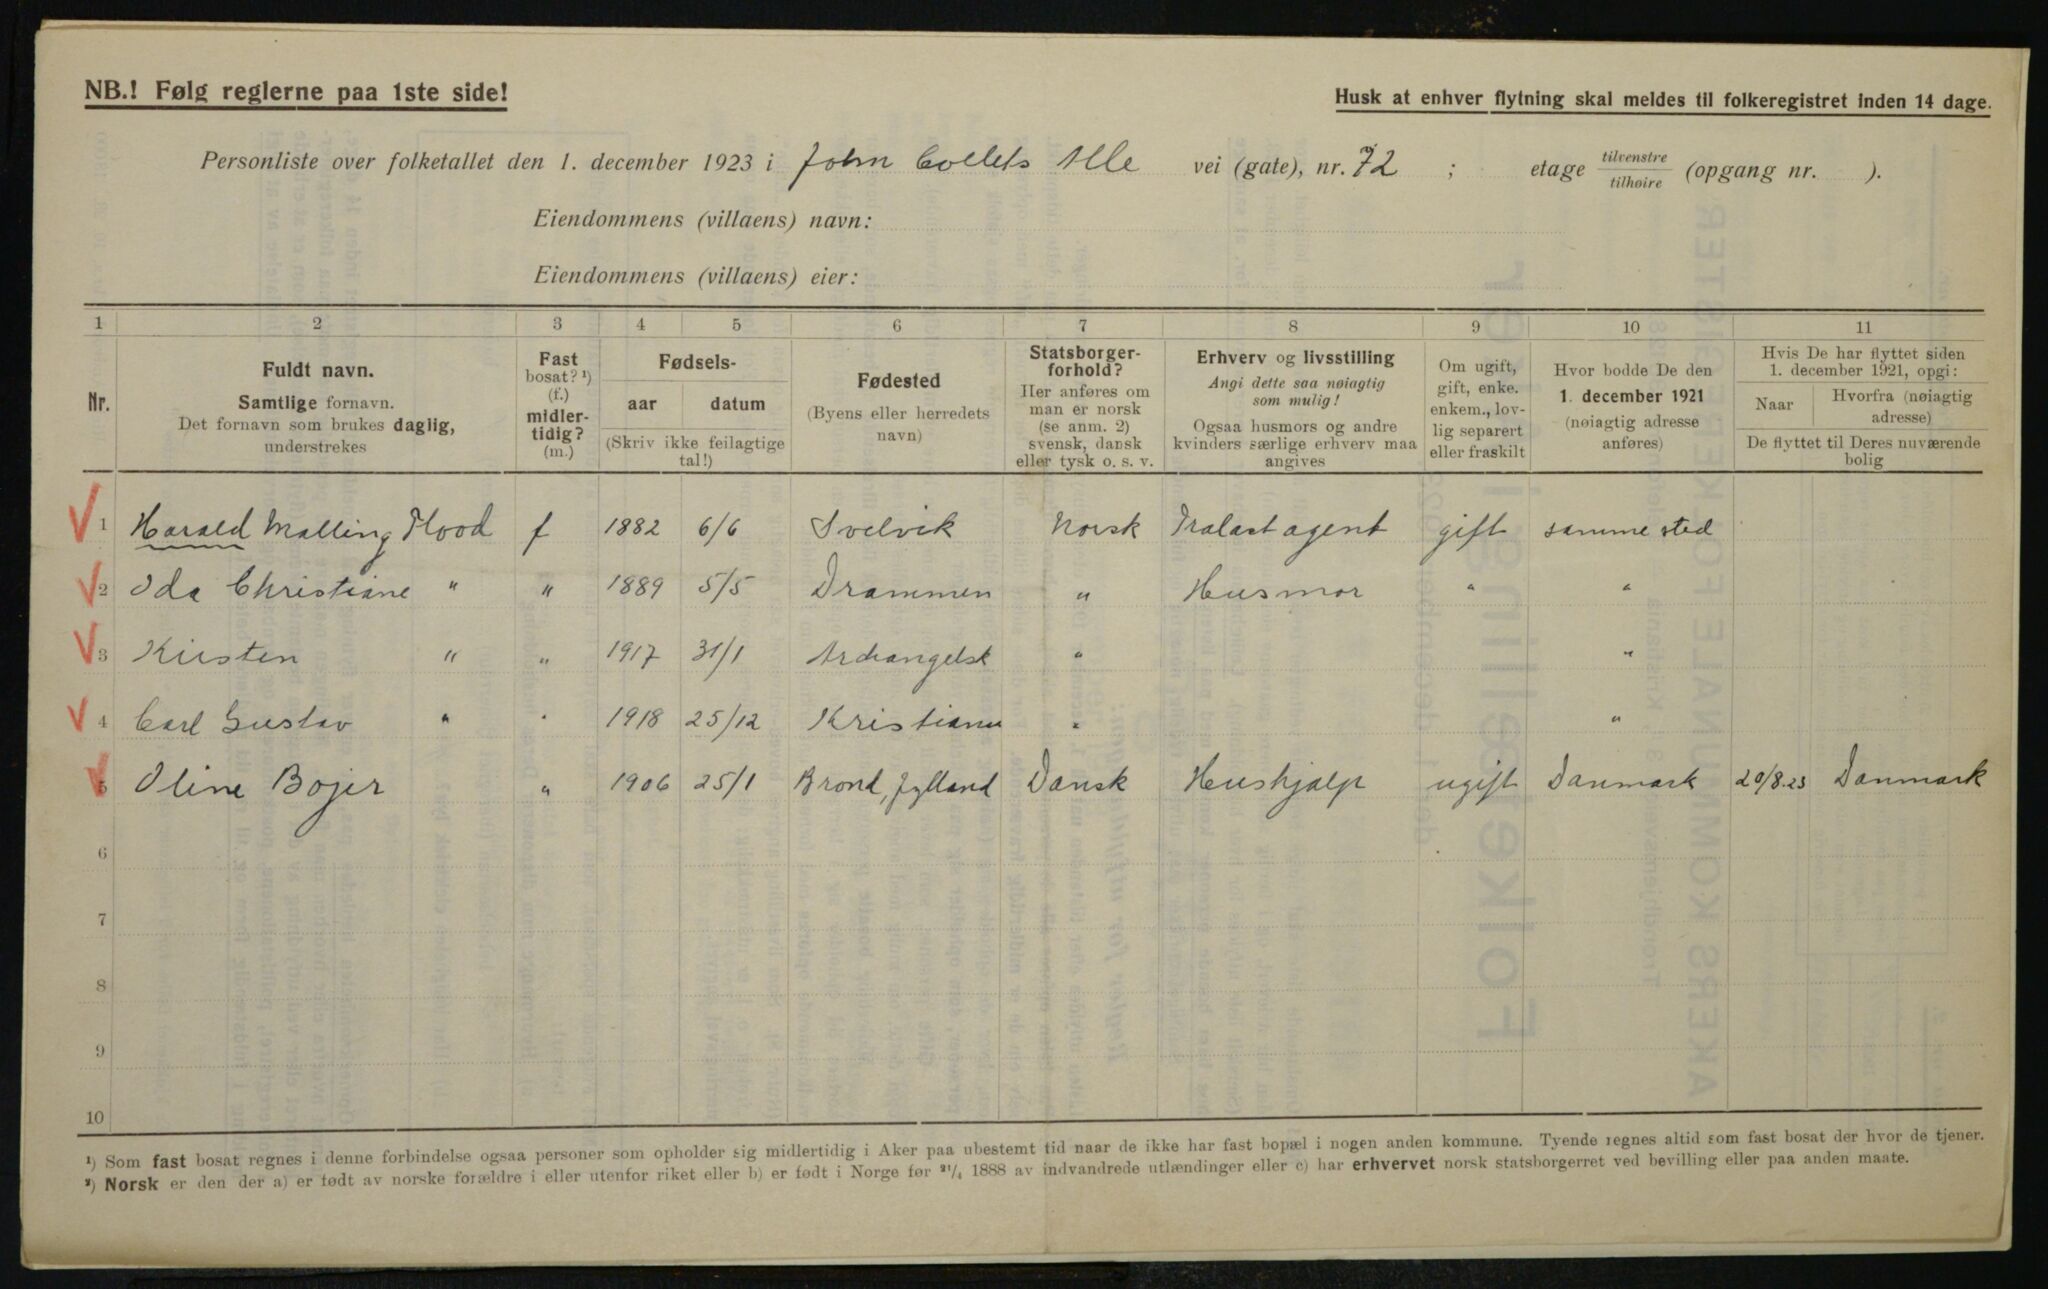 NB.! Følg reglerne paa 1ste side!
Husk at enhver flytning skal meldes til folkeregistret inden 14 dage.
Personliste over folketallet den 1. december 1923 i John Collets Alle vei (gate), nr. 72 ; etage tilvenstre/tilhøire (opgang nr. ).
Eiendommens (villaens) navn:
Eiendommens (villaens) eier:
1 2 3 4 5 6 7 8 9 10 11
Nr.
Fuldt navn.
Samtlige fornavn.
Det fornavn som brukes daglig,
understrekes
Fast
bosat? ¹)
(f.)
midler-
tidig?
(m.)
Fødsels-
aar datum
(Skriv ikke feilagtige
tal!)
Fødested
(Byens eller herredets
navn)
Statsborger-
forhold?
Her anføres om
man er norsk
(se anm. 2)
svensk, dansk
eller tysk o. s. v.
Erhverv og livsstilling
Angi dette saa nøiagtig
som mulig!
Ogsaa husmors og andre
kvinders særlige erhverv maa
angives
Om ugift,
gift, enke.
enkem., lov-
lig separert
eller fraskilt
Hvor bodde De den
1. december 1921
(nøiagtig adresse
anføres)
Hvis De har flyttet siden
1. december 1921, opgi:
Naar Hvorfra (nøiagtig
adresse)
De flyttet til Deres nuværende
bolig
1 Harald Malling Flood f 1882 6/6 Svelvik Norsk Trælastagent gift samme sted
2 Ida Christiane " " 1889 5/5 Drammen " Husmor " "
3 Kirsten " " 1917 31/1 Archangelsk " "
4 Carl Gustav " " 1918 25/12 Kristiania " "
5 Oline Bojer " 1906 25/1 Brond, Jylland Dansk Hushjælp ugift Danmark 20/8.23 Danmark
6
7
8
9
10
¹) Som fast bosat regnes i denne forbindelse ogsaa personer som opholder sig midlertidig i Aker paa ubestemt tid naar de ikke har fast bopæl i nogen anden kommune. Tyende regnes altid som fast bosat der hvor de tjener.
²) Norsk er den der a) er født av norske forældre i eller utenfor riket eller b) er født i Norge før ²¹/₄ 1888 av indvandrede utlændinger eller c) har erhvervet norsk statsborgerret ved bevilling eller paa anden maate.